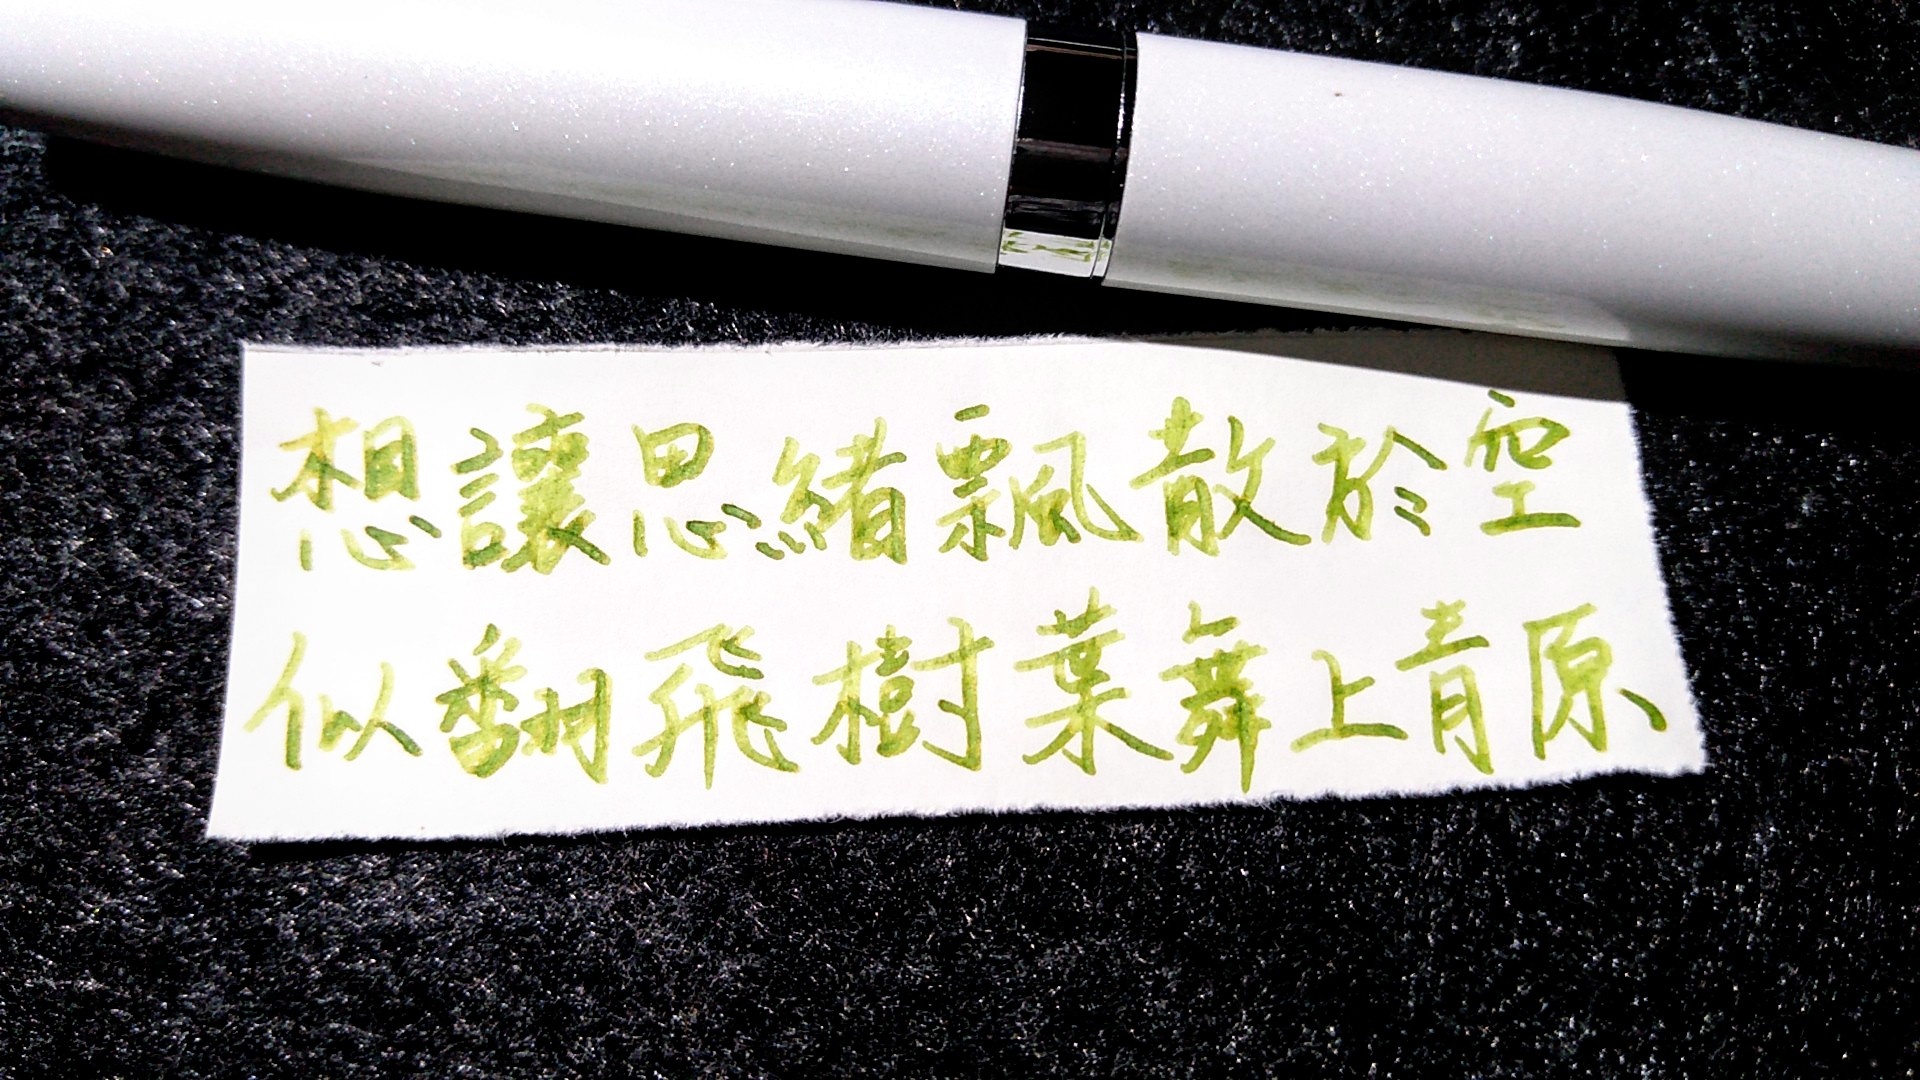 想讓思緒飄散於空
似翻飛樹葉舞上青原